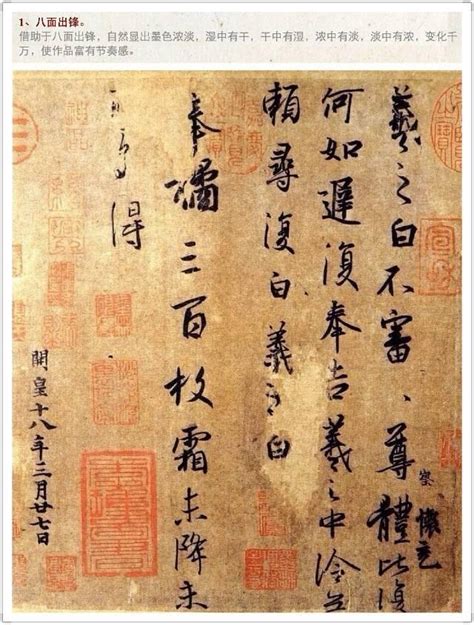 1、八面出锋。
借助于八面出锋，自然显出墨色浓淡，湿中有干，干中有湿，浓中有淡，淡中有浓，变化千
万，使作品富有节奏感。
羲之白不審、尊體比復
察 懷充
何如遲復奉告羲之中冷無
賴尋復白羲之白
奉橘三百枚霜未降未
可多得
開皇十八年三月廿七日